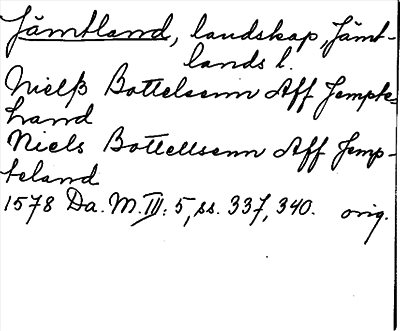 Jämtland, landskap, Jämt-
lands l.
Nielß Bottelsenn Aff Jempte=
land
Niels Bottellsenn Aff Jemp-
teland
1578 Da. M. III: 5, ss. 337, 340. orig.